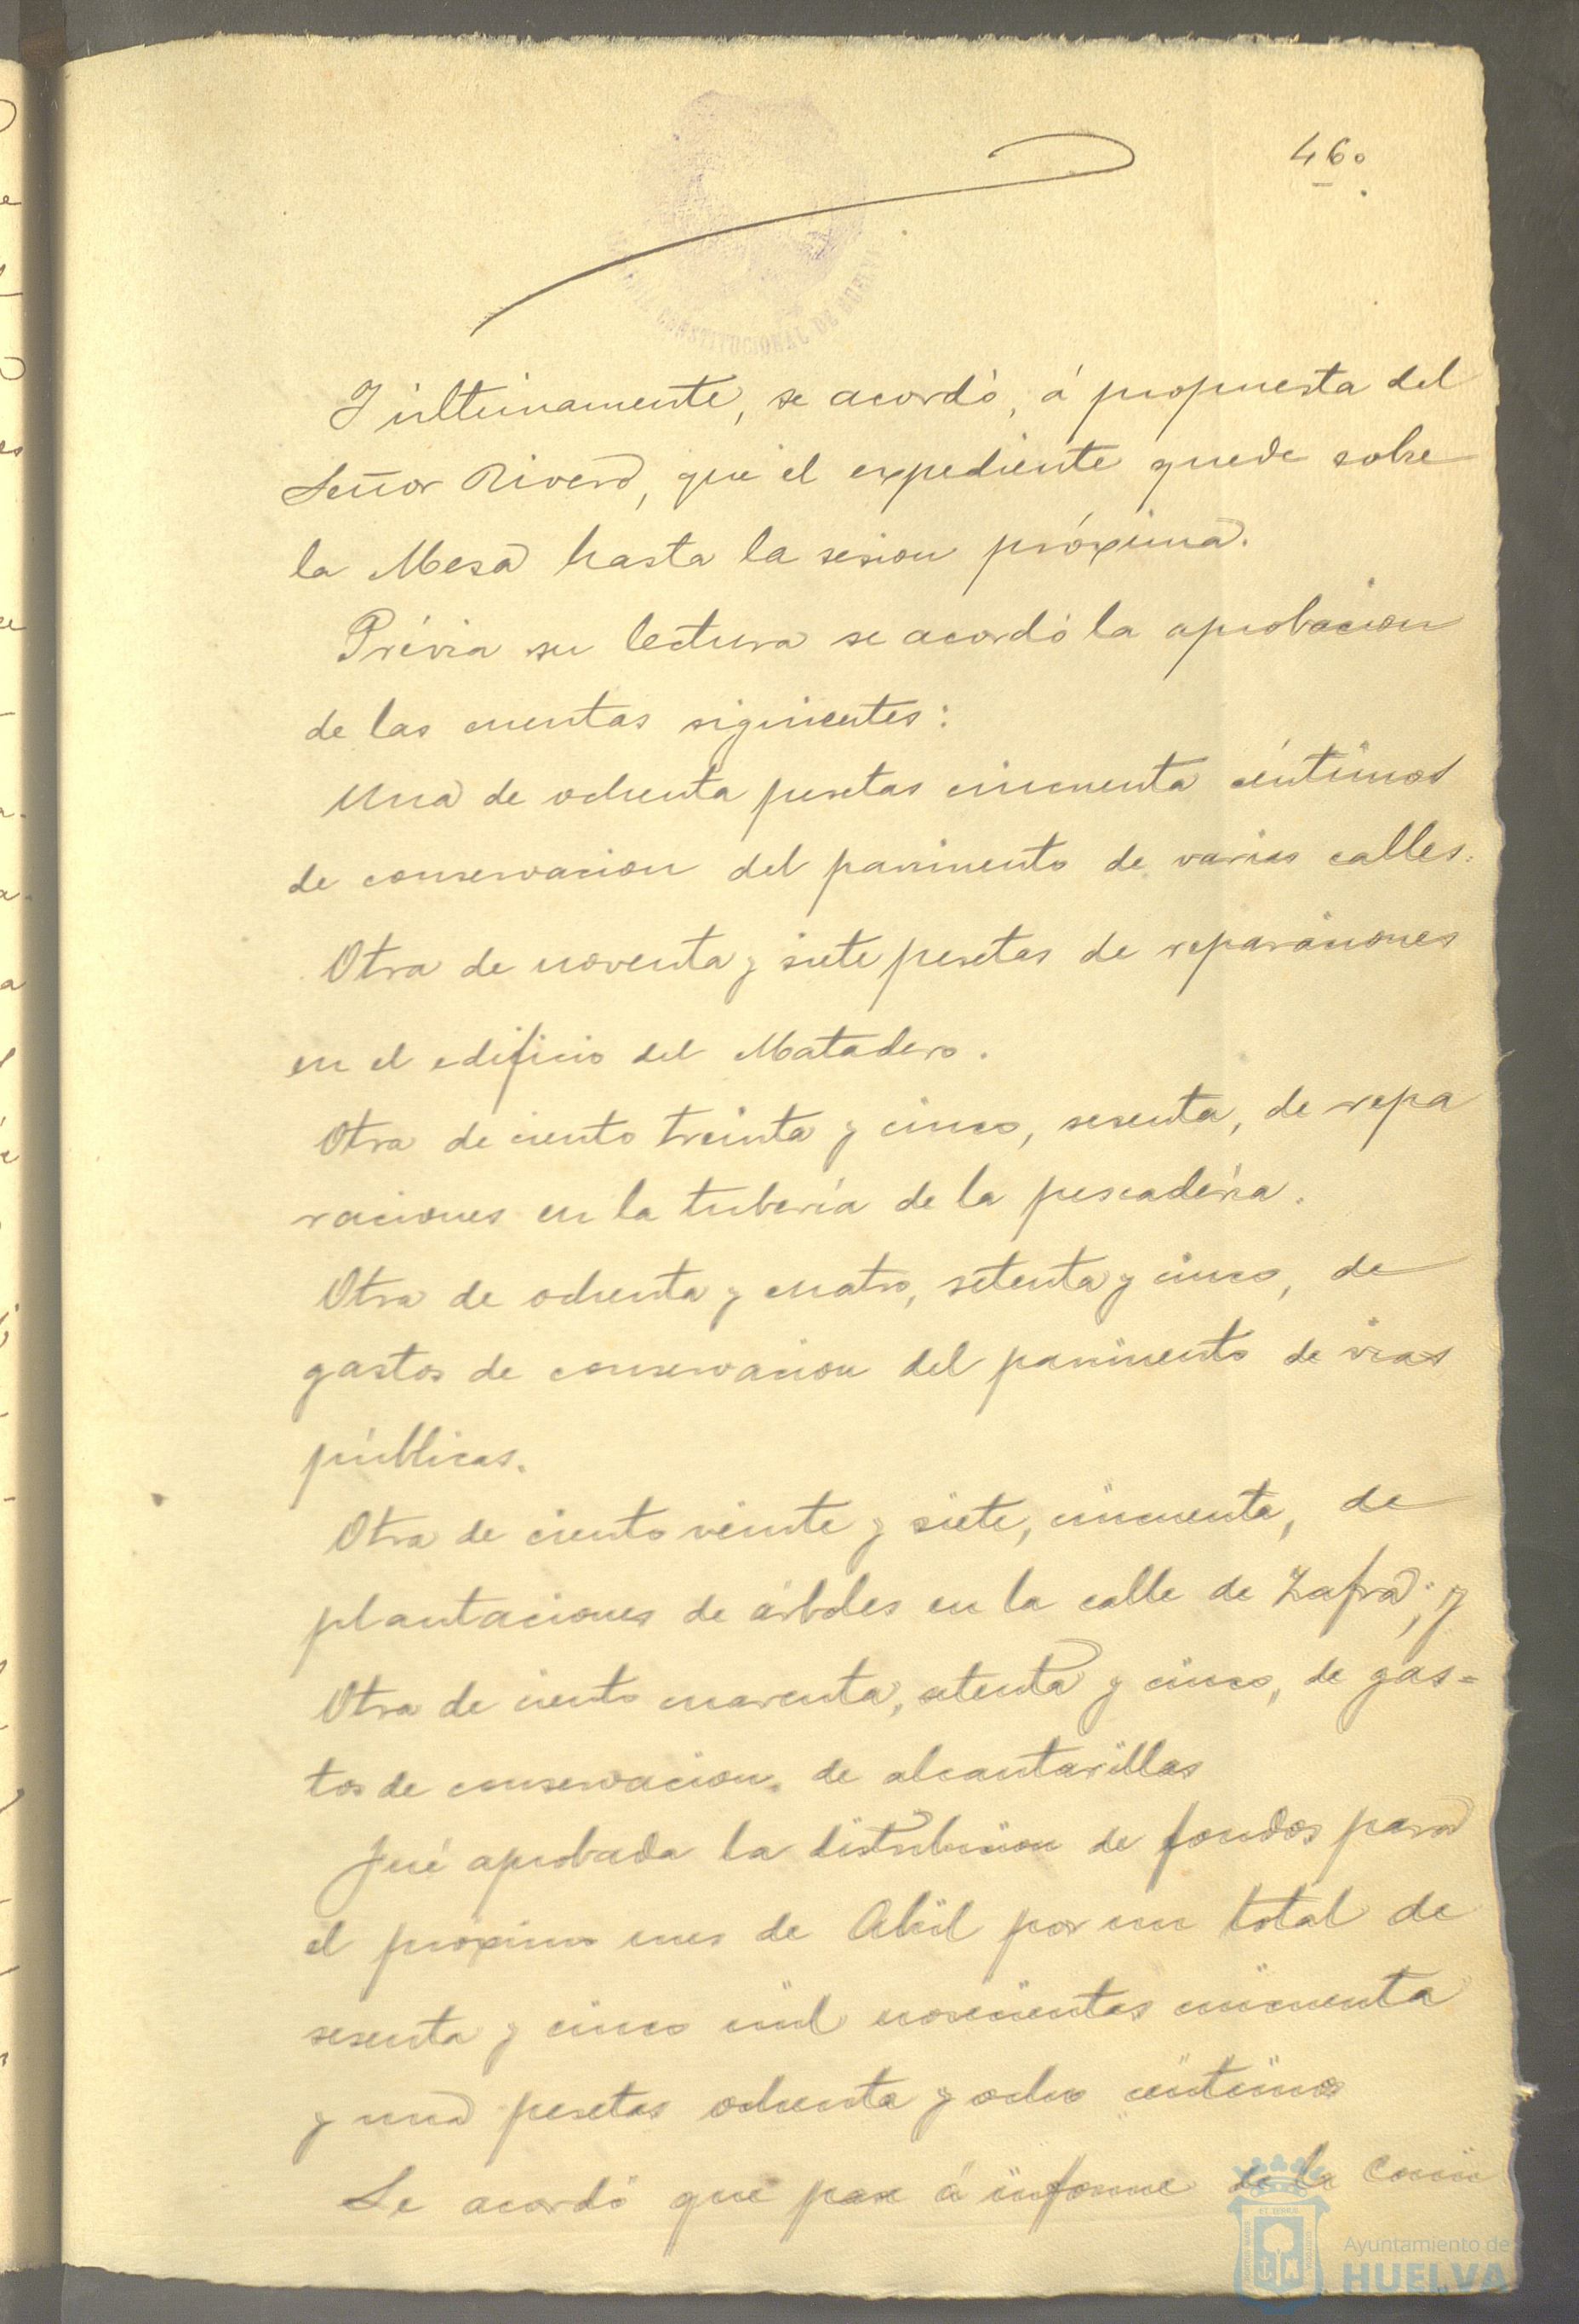 46.
CONSTITUCIONAL DE
Y ultimamente, se acordó, á propuesta del
Señor Rivero, que el expediente quede sobre
la Mesa hasta la sesion próxima.
Prévia su lectura se acordó la aprobacion
de las cuentas siguientes:
Una de ochenta pesetas cincuenta céntimos
de conservacion del pavimento de varias calles.
Otra de noventa y siete pesetas de reparaciones
en el edificio del Matadero.
Otra de ciento treinta y cinco, sesenta, de repa
raciones en la tubería de la pescadería.
Otra de ochenta y cuatro, setenta y cinco, de
gastos de conservacion del pavimento de vias
públicas.
Otra de ciento veinte y siete, cincuenta, de
plantaciones de árboles en la calle de Zafra; y
Otra de ciento cuarenta, setenta y cinco, de gas=
tos de conservacion de alcantarillas
Fué aprobada la distribucion de fondos para
el próximo mes de Abril por un total de
sesenta y cinco mil novecientas cincuenta
y una pesetas ochenta y ocho céntimos
Se acordó que pase á informe de la Comi
Ayuntamiento de
HUELVA